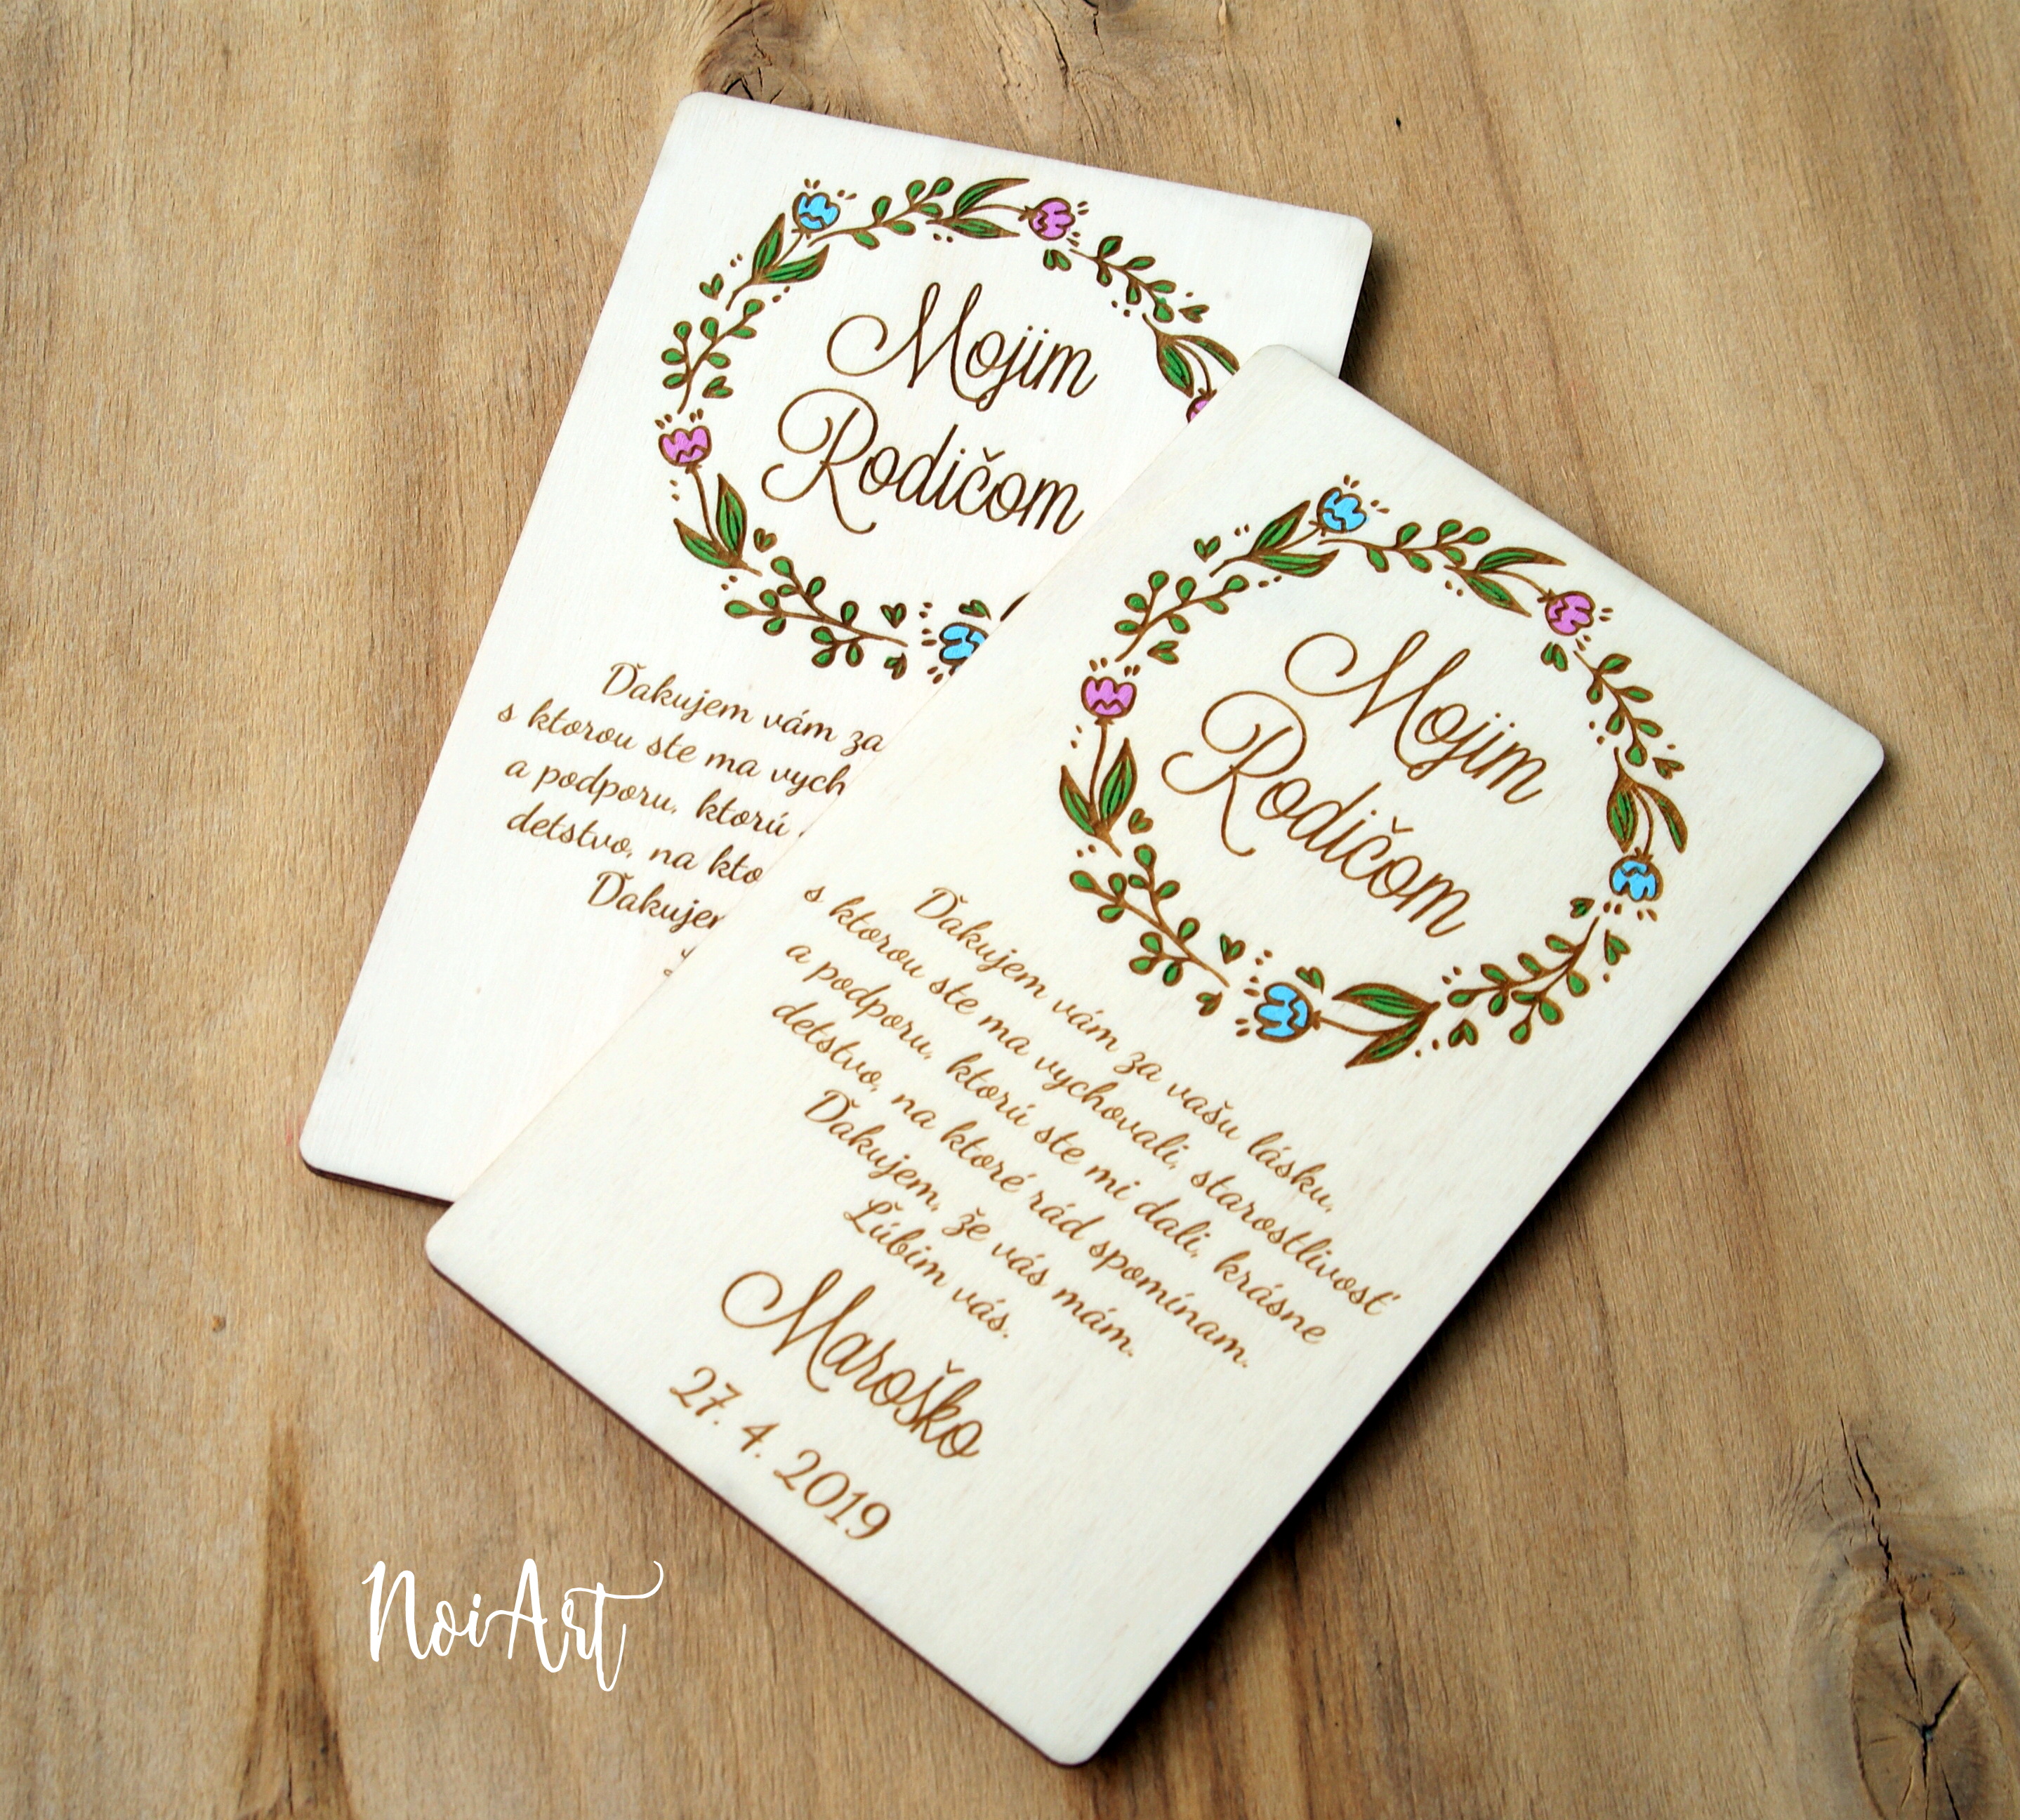 Mojim
Rodičom
Ďakujem vám za
s ktorou ste ma vych
a podporu, ktorú
detstvo, na kto
Ďakujem
Mojim
Rodičom
Ďakujem vám za vašu lásku,
s ktorou ste ma vychovali, starostlivosť
a podporu, ktorú ste mi dali, krásne
detstvo, na ktoré rád spomínam.
Ďakujem, že vás mám.
Ľúbim vás.
Maroško
27. 4. 2019
NoiArt